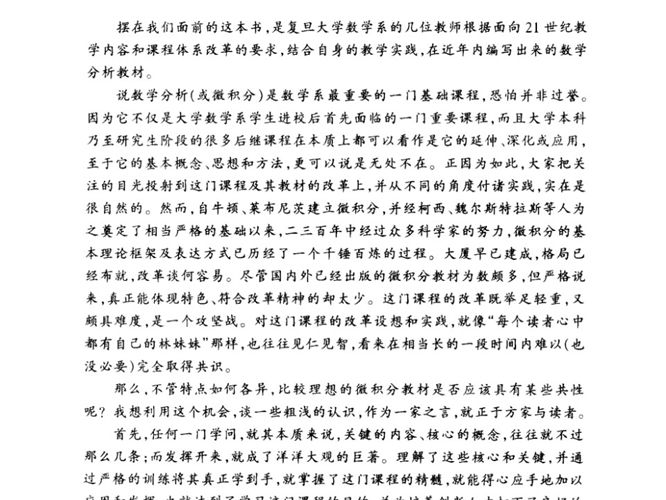 摆在我们面前的这本书,是复旦大学数学系的几位教师根据面向21世纪教
学内容和课程体系改革的要求,结合自身的教学实践,在近年内编写出来的数学
分析教材。
说数学分析(或微积分)是数学系最重要的一门基础课程,恐怕并非过誉。
因为它不仅是大学数学系学生进校后首先面临的一门重要课程,而且大学本科
乃至研究生阶段的很多后继课程在本质上都可以看作是它的延伸、深化或应用,
至于它的基本概念、思想和方法,更可以说是无处不在。正因为如此,大家把关
注的目光投射到这门课程及其教材的改革上,并从不同的角度付诸实践,实在是
很自然的。然而,自牛顿、莱布尼茨建立微积分,并经柯西、魏尔斯特拉斯等人为
之奠定了相当严格的基础以来,二三百年中经过众多科学家的努力,微积分的基
本理论框架及表达方式已历经了一个千锤百炼的过程。大厦早已建成,格局已
经布就,改革谈何容易。尽管国内外已经出版的微积分教材为数颇多,但严格说
来,真正能体现特色、符合改革精神的却太少。这门课程的改革既举足轻重,又
颇具难度,是一个攻坚战。对这门课程的改革设想和实践,就像“每个读者心中
都有自己的林妹妹”那样,也往往见仁见智,看来在相当长的一段时间内难以(也
没必要)完全取得共识。
那么,不管特点如何各异,比较理想的微积分教材是否应该具有某些共性
呢?我想利用这个机会,谈一些粗浅的认识,作为一家之言,就正于方家与读者。
首先,任何一门学问,就其本质来说,关键的内容、核心的概念,往往就不过
那么几条;而发挥开来,就成了洋洋大观的巨著。理解了这些核心和关键,并通
过严格的训练将其真正学到手,就掌握了这门课程的精髓,就能得心应手地加以